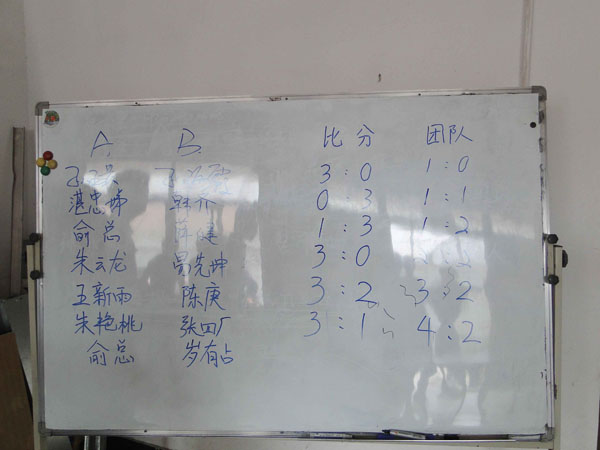 A B 比分 团队
3:0 1:0
湛忠坤 韩介 0:3 1:1
俞总 1:3 1:2
朱云龙 易先坤 3:0 2:2
王新雨 陈庚 3:2 3:2
朱艳桃 张四厂 3:1 4:2
俞总 岁有占